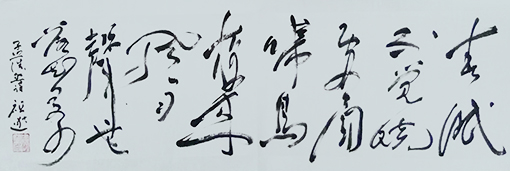 春眠
不觉晓
处处闻
啼鸟
夜来
风雨
声花
落知多少